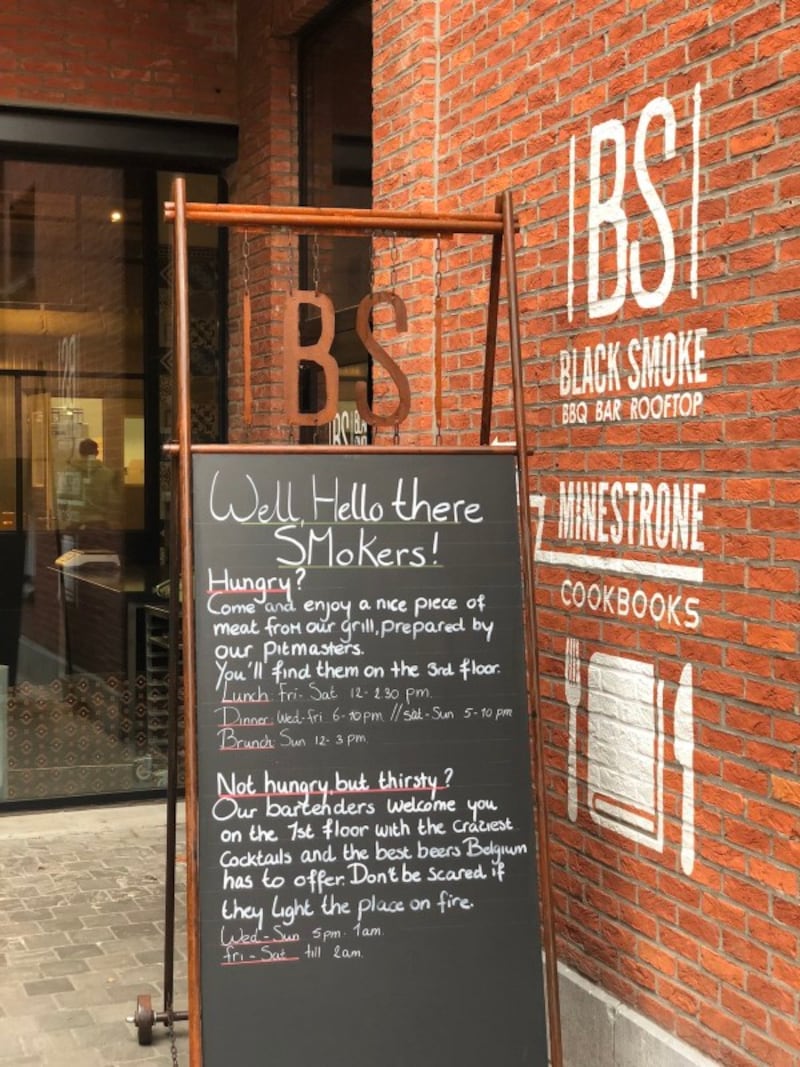 BS
Well, Hello there
SMokers!
Hungry?
Come and enjoy a nice piece of
meat from our grill, prepared by
our pitmasters.
You'll find them on the 3rd floor.
Lunch: Fri- Sat 12- 2.30 pm.
Dinner: Wed-fri 6-10pm // Sat-Sun 5-10 pm
Brunch: Sun 12- 3 pm.
Not hungry, but thirsty?
Our bartenders welcome you
on the 1st floor with the craziest
Cocktails and the best beers Belgium
has to offer. Don't be scared if
they light the place on fire.
Wed - Sun 5pm - 1am.
Fri - Sat till 2am.
BS
BLACK SMOKE
BBQ BAR ROOFTOP
MINESTRONE
COOKBOOKS